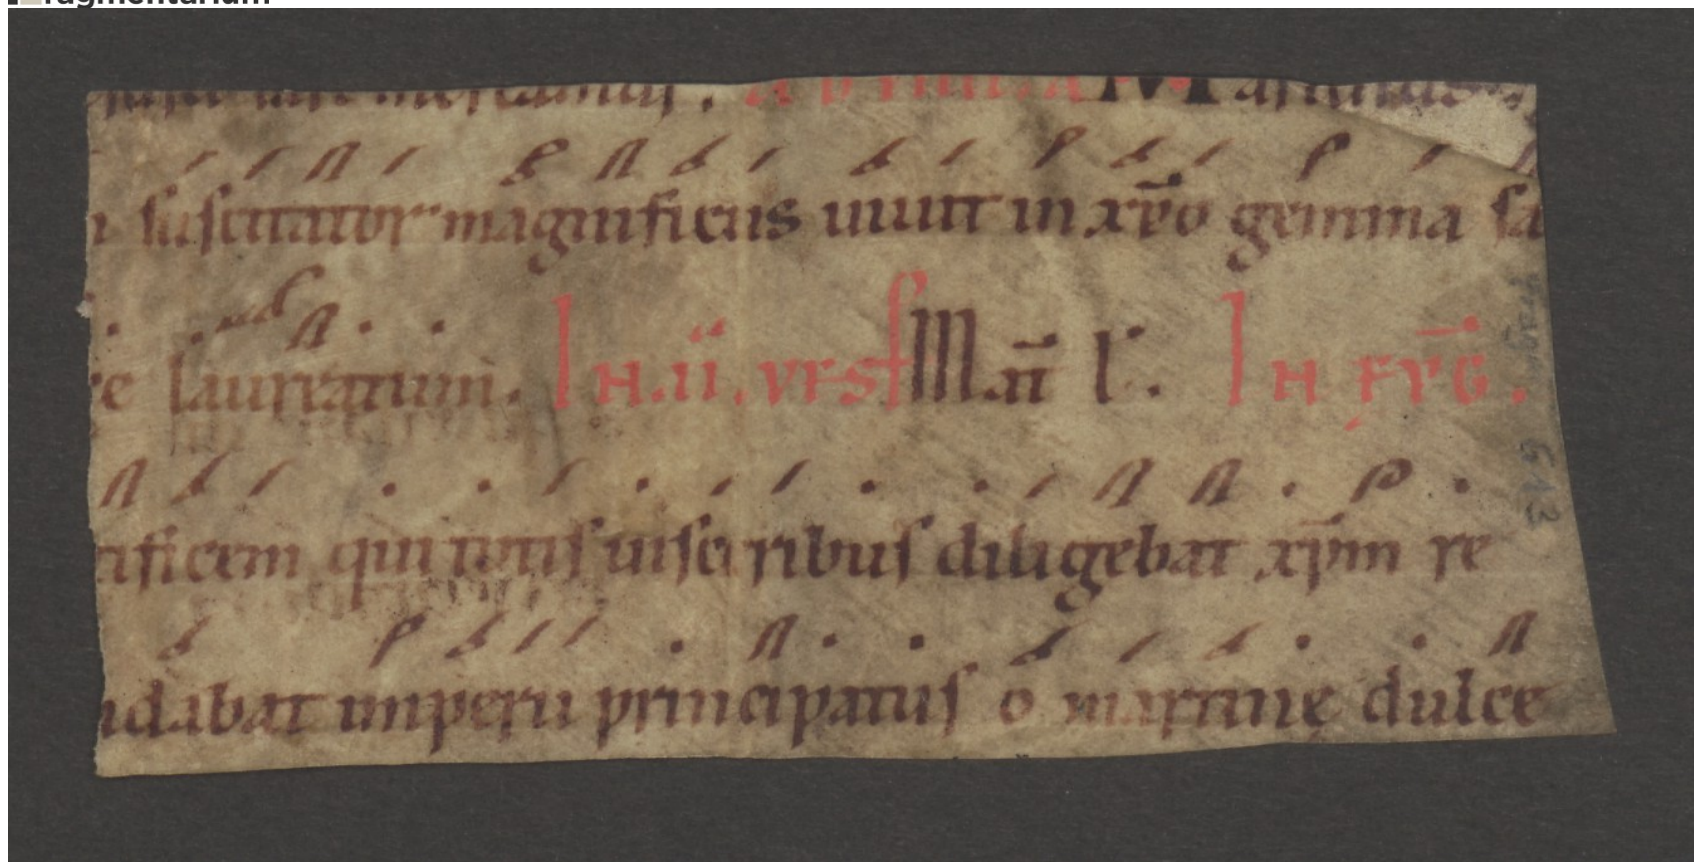 mereamur.
suscitator magnificus uiuit in xpo gemma sa
re laureatum. IN .ii. VESP Man l. IN EVG.
tificem qui totis uisceribus diligebat xpm re
idabat imperii principatus o martine dulce